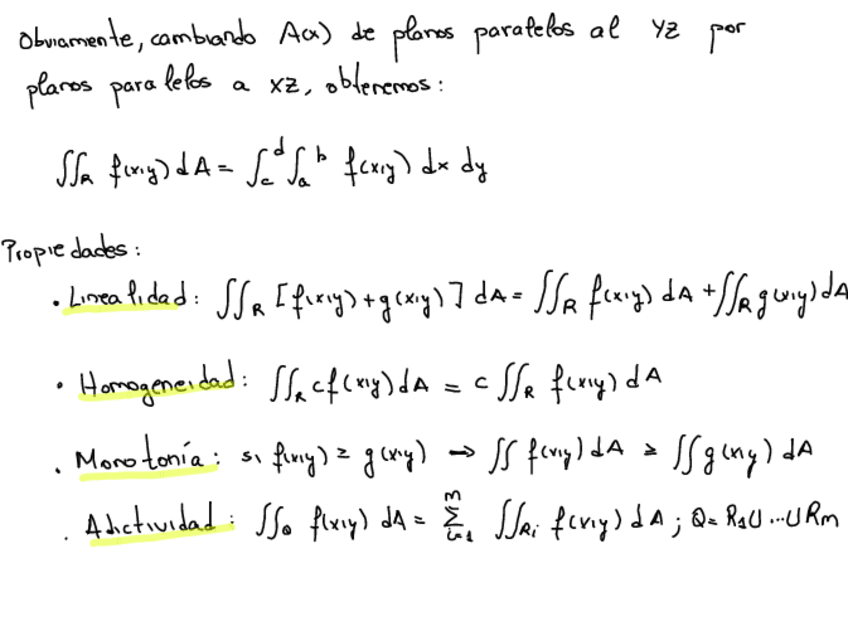 Obviamente, cambiando A(x) de planos paralelos al YZ por
planos paralelos a XZ, obtenemos:
∬_R f(x,y) dA = ∫_c^d ∫_a^b f(x,y) dx dy
Propiedades:
· Linealidad: ∬_R [f(x,y)+g(x,y)] dA = ∬_R f(x,y) dA + ∬_R g(x,y) dA
· Homogeneidad: ∬_R cf(x,y) dA = c ∬_R f(x,y) dA
· Monotonía: si f(x,y) ≥ g(x,y) → ∬ f(x,y) dA ≥ ∬ g(x,y) dA
· Adictividad: ∬_Q f(x,y) dA = ∑_{i=1}^m ∬_{Ri} f(x,y) dA ; Q = R1 ∪ ... ∪ Rm